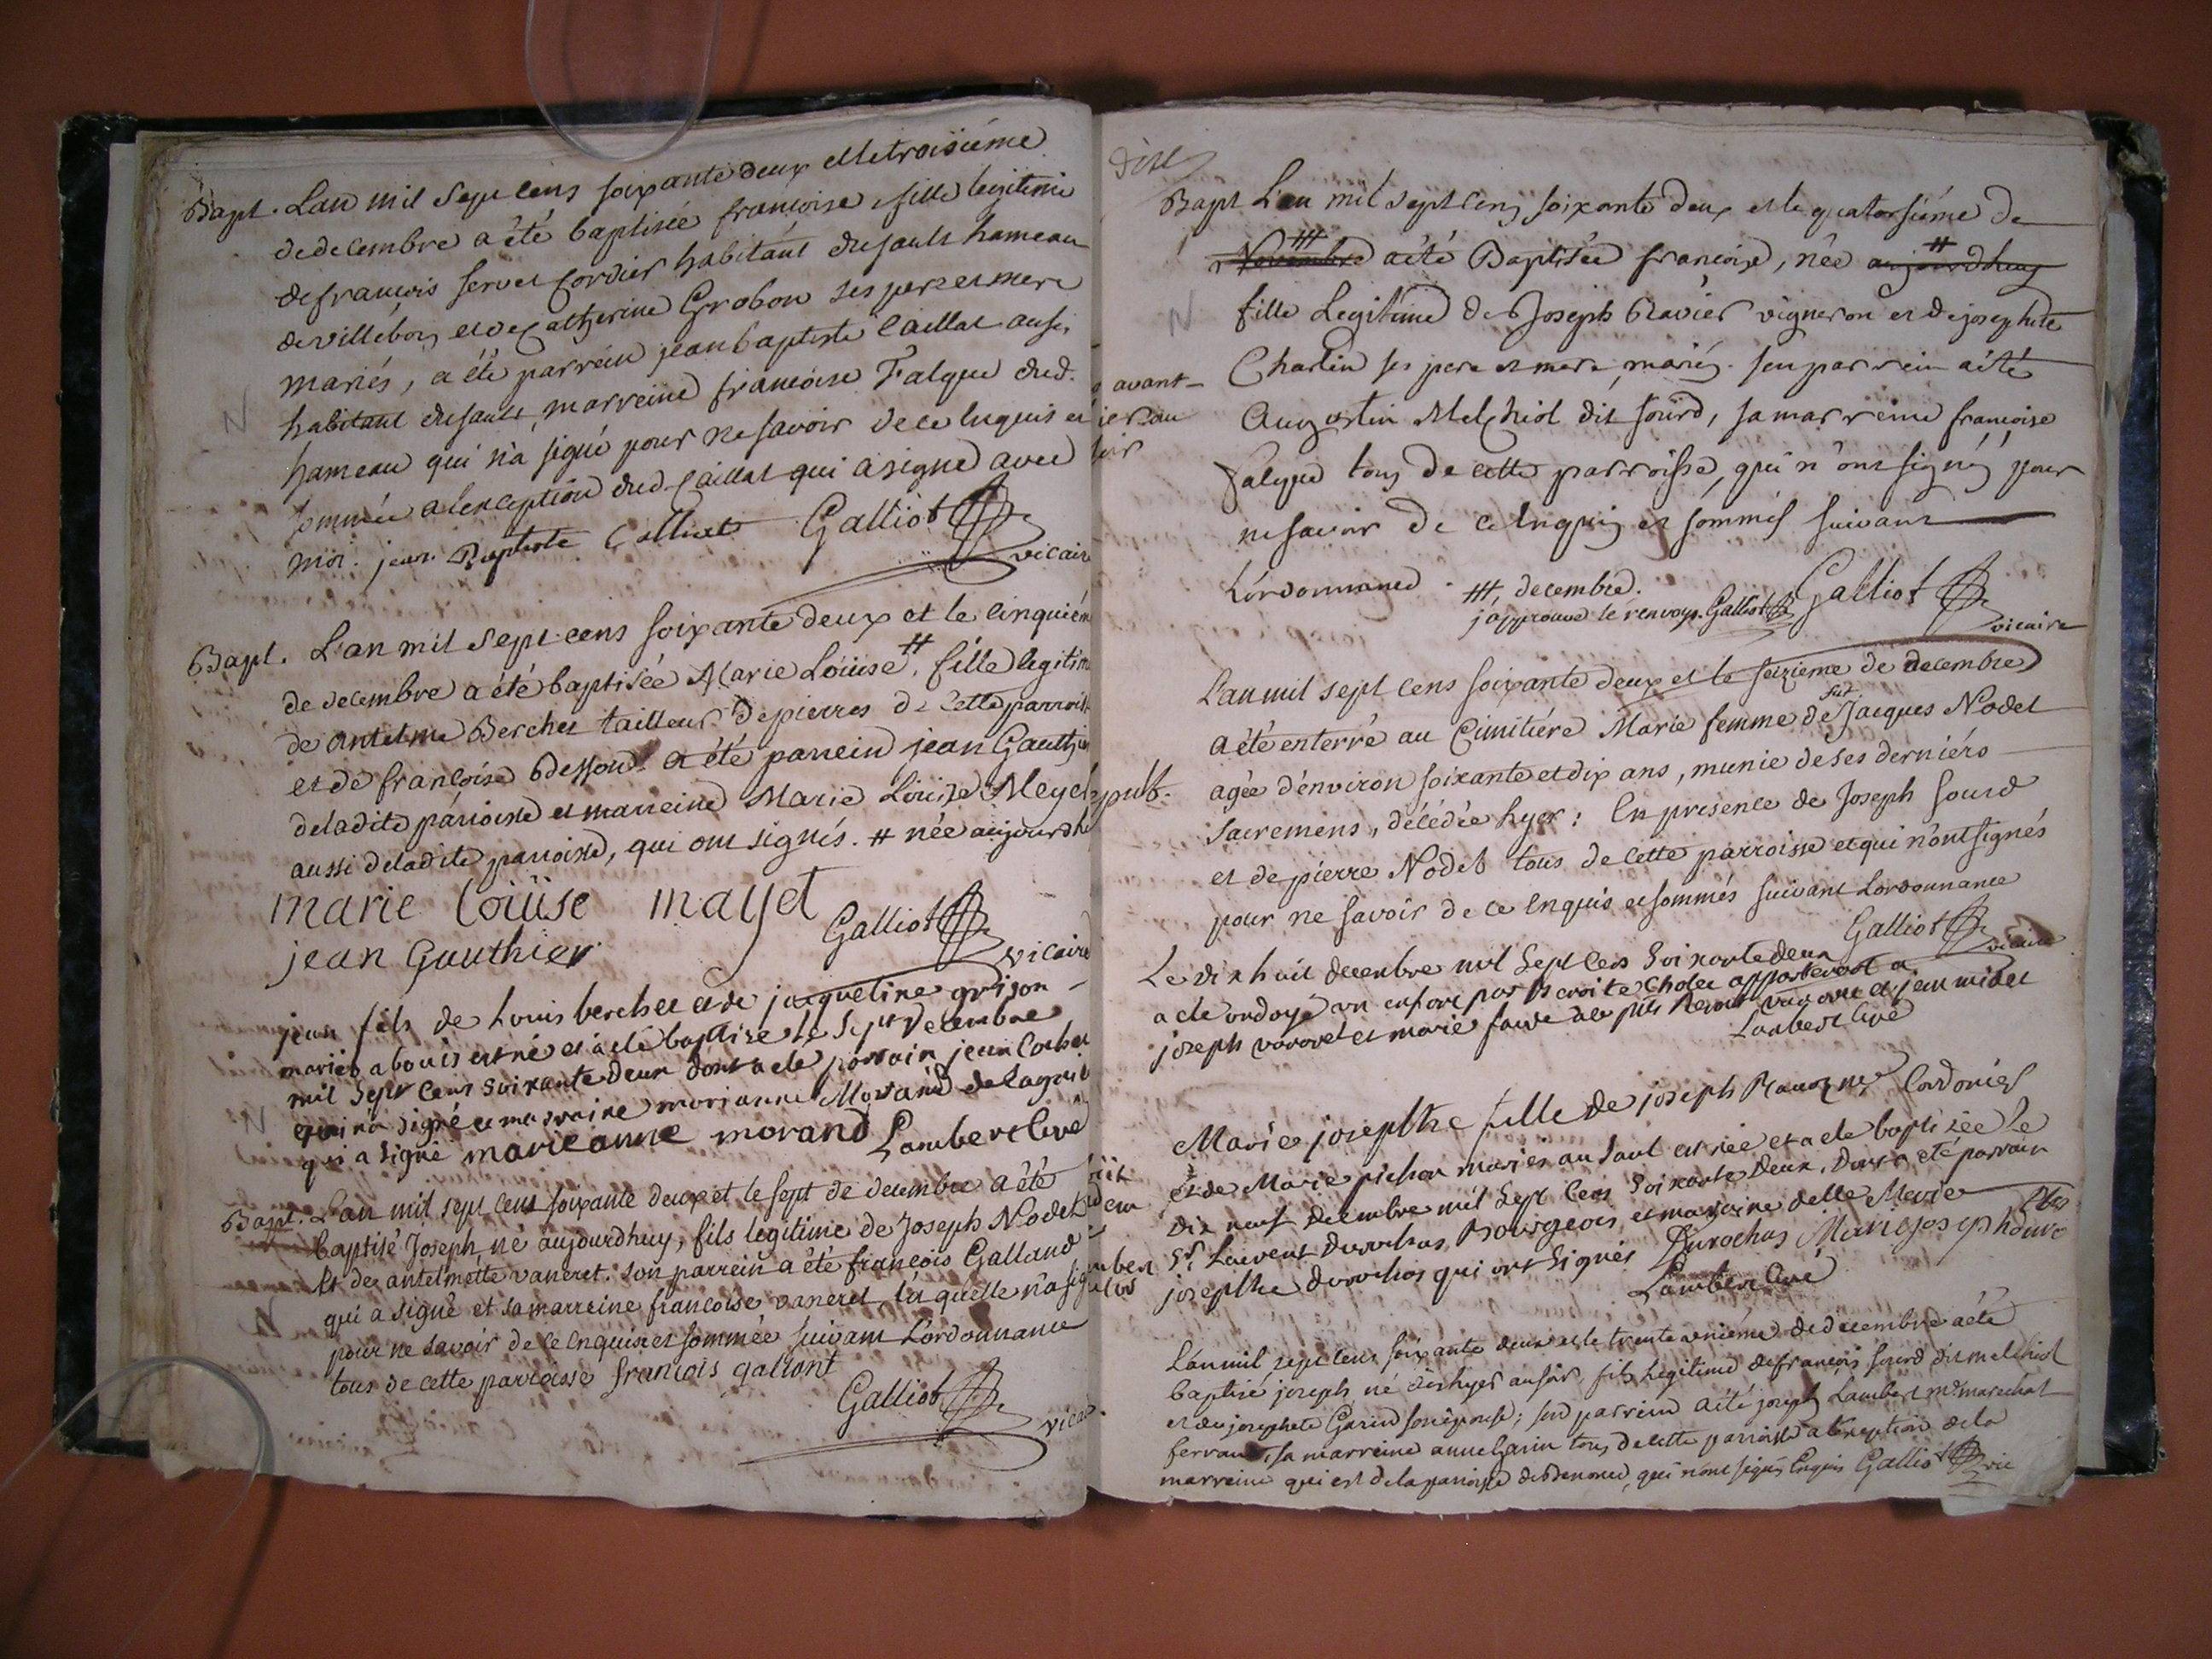 Bapt. L'an mil sept cens soixante deux et le troisiéme
de decembre a été baptisée françoise fille legitime
de françois servet cordier habitant du sault hameau
de villebois et de Catherine Grobon ses pere et mere
mariés, a été parrein jean baptiste Caillat aussi
habitant du sault, marreine françoise Falque dud.
hameau qui n'a signé pour ne savoir de ce enquis et
sommée a l'exception dud. Caillat qui a signé avec
moi. jean Baptiste Galliot
vicair
Bapt. L'an mil sept cens soixante deux et le cinquiém
de decembre a été baptisée Marie Loüise #, fille legitim
de antelme Bercher tailleur de pierres de cette parroiss
et de françoise a été parrein jean Gauthier
de la dite parroisse et marreine Marie Loüize Meyet
aussi de la dite parroisse, qui ont signés. # née aujourdh
marie loüise mayet
jean Gauthier Galliot
vicaire
jean fils de Louis bercher et de jacqueline grison
mariés a bouis est né et a été baptize le sept decembre
mil sept cens soixante deux dont a été parrain jean
qui na signé et marraine marianne Morand
qui a signé marieanne morand Lambert curé
Bapt. L'an mil sept cens soixante deux et le sept de decembre a été
baptisé Joseph né aujourdhuy, fils legitime de Joseph Nodet
et de antelmette vaneret. son parrein a été francois Galland
qui a signé et sa marreine francoise vaneret, la quelle n'a sig
pour ne savoir de ce enquise et sommée suivant L'ordonnance
tous de cette parroisse francois gallont
Galliot
vicai
avant
Bapt L'an mil sept cens soixante deux et le quatorsiéme de
# Novembre a été Baptisée francoise, née aujourdhuy #
fille Legitime de Joseph Ravier vigneron et de josephete
Charlin ses pere et mere mariés. son parrein a été
Augustin Melchiol dit sourd, sa marreine francoise
falque tous de cette parroisse, qui n'ont signé, pour
ne savoir de ce enquis et sommés suivant
L'ordonnance. #, decembre.
j'approuve le renvoys. Galliot Galliot
vicaire
L'an mil sept cens soixante deux et le seizieme de decembre
a été enterré au Cimitiére Marie femme de fut Jacques Nodet
agée d'environ soixante et dix ans, munie de ses derniérs
sacremens, décédée hyer: En presence de Joseph sourd
et de pierre Nodet tous de cette parroisse et qui n'ont signés
pour ne savoir de ce enquis et sommés suivant L'ordonnance
Galliot
vicaire
Le dix huit decembre mil sept cens soixante deux
a ete ondoyé un enfant par appartenant a
joseph et marie et jean
Lambert curé
Marie josephte fille de joseph Cordonier
et de Marie pichon mariés au saut est née et a ete baptisée le
dix neuf decembre mil sept cens soixante deux, dont a eté parrain
Sr. Laurent durochas Bourgeois et marraine delle Marie
josephte durochas qui ont signés Durochas Marie joseph duro
Lambert curé
L'an mil sept cens soixante deux et le trente uniéme de decembre a été
baptisé joseph né hyer au soir, fils legitime de françois sourd dit melchiol
et de josephete Garin son épouse; son parrein a été joseph Lambert me marechal
ferrant, sa marreine anne Garin tous de cette parroisse a l'exception de la
marreine qui est de la parroisse de Benonce, qui n'ont signés Enquis Galliot vic